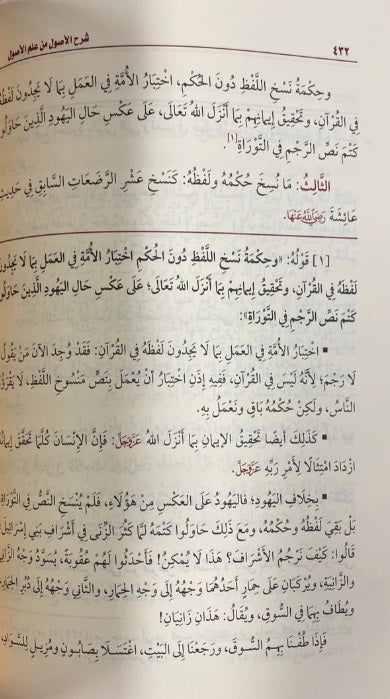 شرح الأصول من علم الأصول
٤٣٢
وَحِكْمَةُ نَسْخِ اللَّفْظِ دُونَ الحُكْمِ، اخْتِبَارُ الأُمَّةِ فِي العَمَلِ بِمَا لَا يَجِدُونَ لَفْظَهُ
فِي القُرْآنِ، وَتَحْقِيقُ إِيمَانِهِمْ بِمَا أَنْزَلَ اللهُ تَعَالَى، عَلَى عَكْسِ حَالِ اليَهُودِ الَّذِينَ حَاوَلُوا
كَتْمَ نَصِّ الرَّجْمِ فِي التَّوْرَاةِ[١].
الثَّالِثُ: مَا نُسِخَ حُكْمُهُ وَلَفْظُهُ: كَنَسْخِ عَشْرِ الرَّضَعَاتِ السَّابِقِ فِي حَدِيثِ
عَائِشَةَ رَضِيَ اللَّهُ عَنْهَا.
[١] قَوْلُهُ: «وَحِكْمَةُ نَسْخِ اللَّفْظِ دُونَ الحُكْمِ اخْتِبَارُ الأُمَّةِ فِي العَمَلِ بِمَا لَا يَجِدُونَ
لَفْظَهُ فِي القُرْآنِ، وَتَحْقِيقُ إِيمَانِهِمْ بِمَا أَنْزَلَ اللهُ تَعَالَى؛ عَلَى عَكْسِ حَالِ اليَهُودِ الَّذِينَ حَاوَلُوا
كَتْمَ نَصِّ الرَّجْمِ فِي التَّوْرَاةِ»:
▪ اخْتِبَارُ الأُمَّةِ فِي العَمَلِ بِمَا لَا يَجِدُونَ لَفْظَهُ فِي القُرْآنِ: فَقَدْ وُجِدَ الآنَ مَنْ يَقُولُ
لَا رَجْمَ؛ لِأَنَّهُ لَيْسَ فِي القُرْآنِ، فَفِيهِ إِذَنْ اخْتِبَارُ أَنْ يُعْمَلَ بِنَصٍّ مَنْسُوخِ اللَّفْظِ، لَا يَقْرَؤُهُ
النَّاسُ، وَلَكِنْ حُكْمُهُ بَاقٍ وَنَعْمَلُ بِهِ.
▪ كَذَلِكَ أَيْضًا تَحْقِيقُ الإِيمَانِ بِمَا أَنْزَلَ اللهُ عَزَّوَجَلَّ: فَإِنَّ الإِنْسَانَ كُلَّمَا تَحَقَّقَ إِيمَانُهُ
ازْدَادَ امْتِثَالًا لِأَمْرِ رَبِّهِ عَزَّوَجَلَّ.
▪ بِخِلَافِ اليَهُودِ؛ فَاليَهُودُ عَلَى العَكْسِ مِنْ هَؤُلَاءِ، فَلَمْ يُنْسَخِ النَّصُّ فِي التَّوْرَاةِ
بَلْ بَقِيَ لَفْظُهُ وَحُكْمُهُ، وَمَعَ ذَلِكَ حَاوَلُوا كَتْمَهُ لَمَّا كَثُرَ الزِّنَى فِي أَشْرَافِ بَنِي إِسْرَائِيلَ
قَالُوا: كَيْفَ نَرْجُمُ الأَشْرَافَ؟ هَذَا لَا يُمْكِنُ! فَأَحْدَثُوا لَهُمْ عُقُوبَةً، يُسَوَّدُ وَجْهُ الزَّانِي
وَالزَّانِيَةِ، وَيُرْكَبَانِ عَلَى حِمَارٍ أَحَدُهُمَا وَجْهُهُ إِلَى وَجْهِ الحِمَارِ، وَالثَّانِي وَجْهُهُ إِلَى دُبُرِ الحِمَارِ،
وَيُطَافُ بِهِمَا فِي السُّوقِ، وَيُقَالُ: هَذَانِ زَانِيَانِ!
فَإِذَا طُفْنَا بِهِمُ السُّوقَ، وَرَجَعْنَا إِلَى البَيْتِ، اغْتَسَلَا بِصَابُونٍ وَمُزِيلٍ لِلسَّوَادِ،